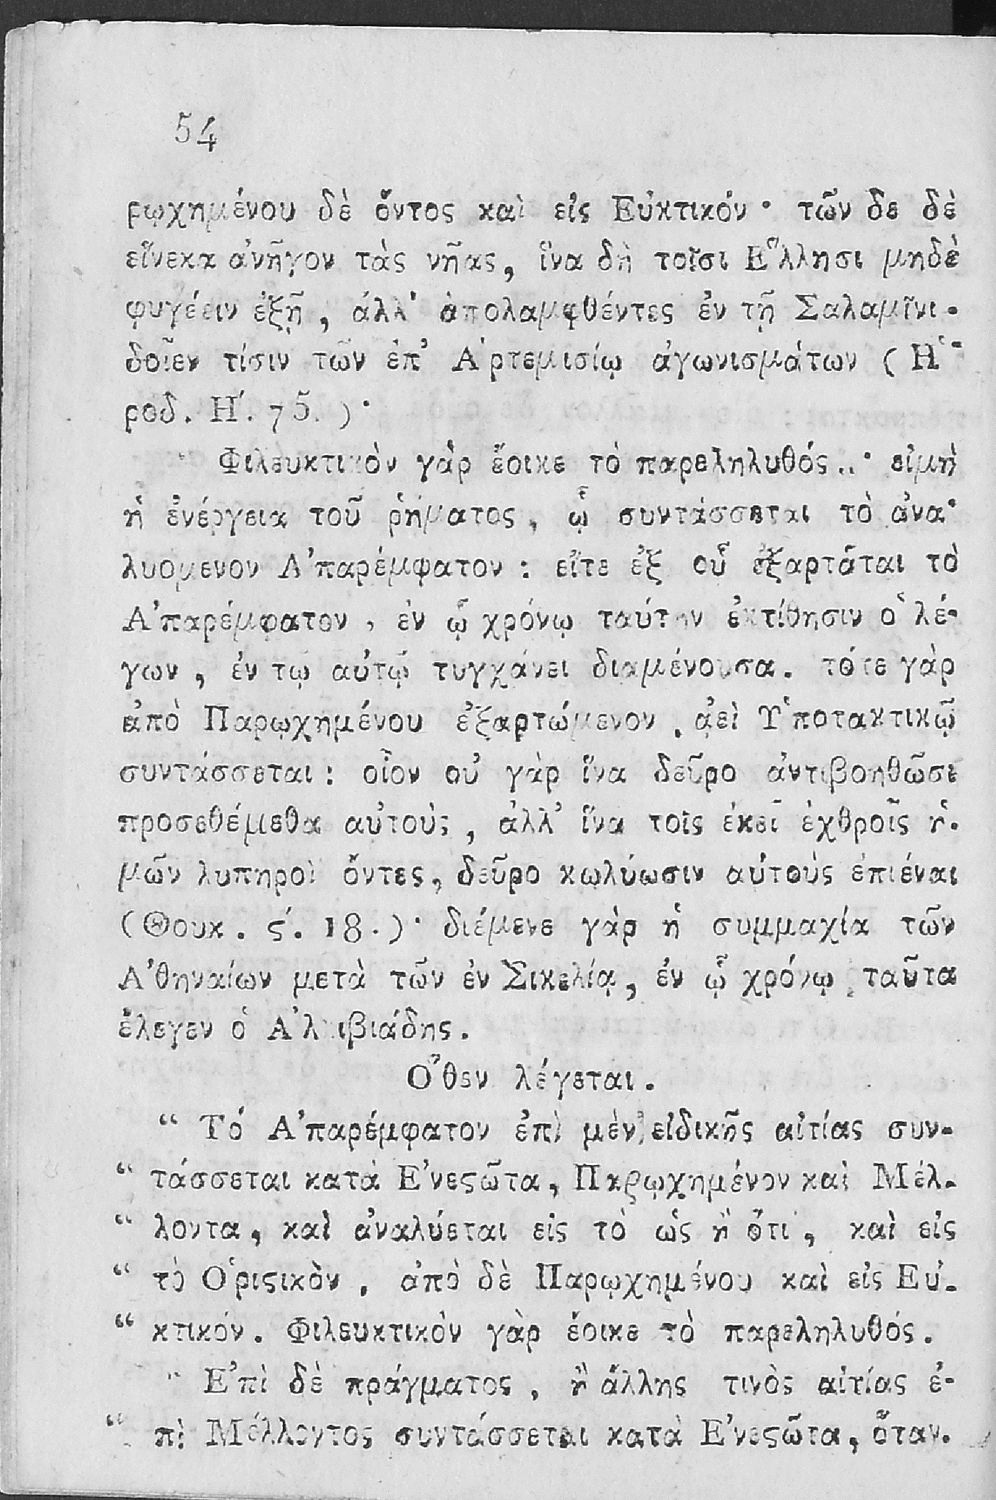 54
ρῳχημένου δὲ ὄντος καὶ εἰς Εὐκτικόν · τῶν δε δὲ
εἵνεκα ἀνῆγον τὰς νῆας, ἵνα δὴ τοῖσι Ἕλλησι μηδὲ
φυγέειν ἐξῇ, ἀλλ' ἀπολαμφθέντες ἐν τῇ Σαλαμῖνι -
δοῖεν τίσιν τῶν ἐπ' Ἀρτεμισίῳ ἀγωνισμάτων ( Ἡ-
ροδ. Η'. 75. ) ·
Φιλευκτικὸν γὰρ ἔοικε τὸ παρεληλυθός.. · εἰμὴ
ἡ ἐνέργεια τοῦ ῥήματος, ᾧ συντάσσεται τὸ ἀνα-
λυομενον Ἀπαρέμφατον : εἴτε ἐξ οὗ ἐξαρτᾶται τὸ
Ἀπαρέμφατον, ἐν ᾧ χρόνῳ ταύτην ἐκτίθησιν ὁ λέ-
γων, ἐν τῳ αὐτῷ τυγχάνει διαμένουσα. τότε γὰρ
ἀπὸ Παρῳχημένου ἐξαρτώμενον, ἀεὶ Ὑποτακτικῷ
συντάσσεται : οἷον οὐ γὰρ ἵνα δεῦρο ἀντιβοηθῶσι
προσεθέμεθα αὐτούς, ἀλλ' ἵνα τοῖς ἐκεῖ ἐχθροῖς ἡ-
μῶν λυπηροὶ ὄντες, δεῦρο κωλύωσιν αὐτούς ἐπιέναι
(Θουκ. ϛ'. 18.) · διέμενε γὰρ ἡ συμμαχία τῶν
Ἀθηναίων μετὰ τῶν ἐν Σικελίᾳ, ἐν ᾧ χρόνῳ ταῦτα
ἔλεγεν ὁ Ἀλκιβιάδης.
Ὅθεν λέγεται.
“ Τό Ἀπαρέμφατον ἐπὶ μὲν εἰδικῆς αἰτίας συν-
“ τάσσεται κατὰ Ἐνεϛῶτα, Παρῳχημένον καὶ Μέλ-
“ λοντα, καὶ ἀναλύεται εἰς τὸ ὡς ἢ ὅτι, καὶ εἰς
“ τὸ Ὁριϛικὸν, ἀπὸ δὲ Παρῳχημένου καὶ εἰς Εὐ-
“ κτικόν. Φιλευκτικὸν γὰρ ἔοικε τὸ παρεληλυθός.
“ Ἐπὶ δὲ πράγματος, ἢ ἄλλης τινὸς αἰτίας ἐ-
“ πὶ Μέλλοντος συντάσσεται κατὰ Ἐνεϛῶτα, ὅταν.